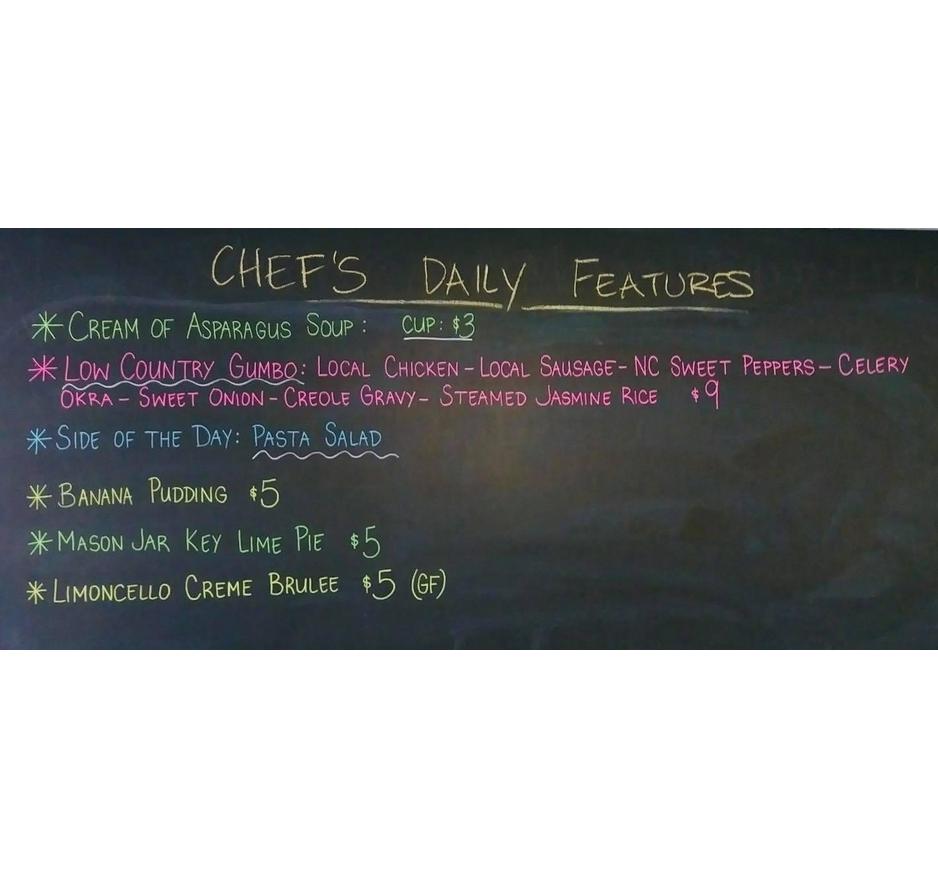 CHEF'S DAILY FEATURES
* CREAM OF ASPARAGUS SOUP: CUP: $3
* LOW COUNTRY GUMBO: LOCAL CHICKEN - LOCAL SAUSAGE - NC SWEET PEPPERS - CELERY
OKRA - SWEET ONION - CREOLE GRAVY - STEAMED JASMINE RICE $9
* SIDE OF THE DAY: PASTA SALAD
* BANANA PUDDING $5
* MASON JAR KEY LIME PIE $5
* LIMONCELLO CREME BRULEE $5 (GF)